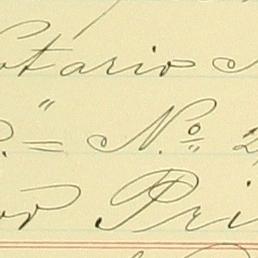 otario
"
= N.º 2
or Pri